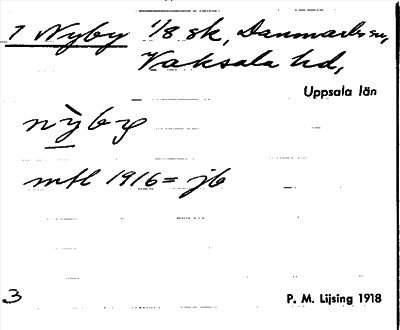 1 Nyby 1/8 sk, Danmarks sn,
Vaksala hd,
Uppsala län
nỳby
mtl 1916 = jb
3
P. M. Lijsing 1918